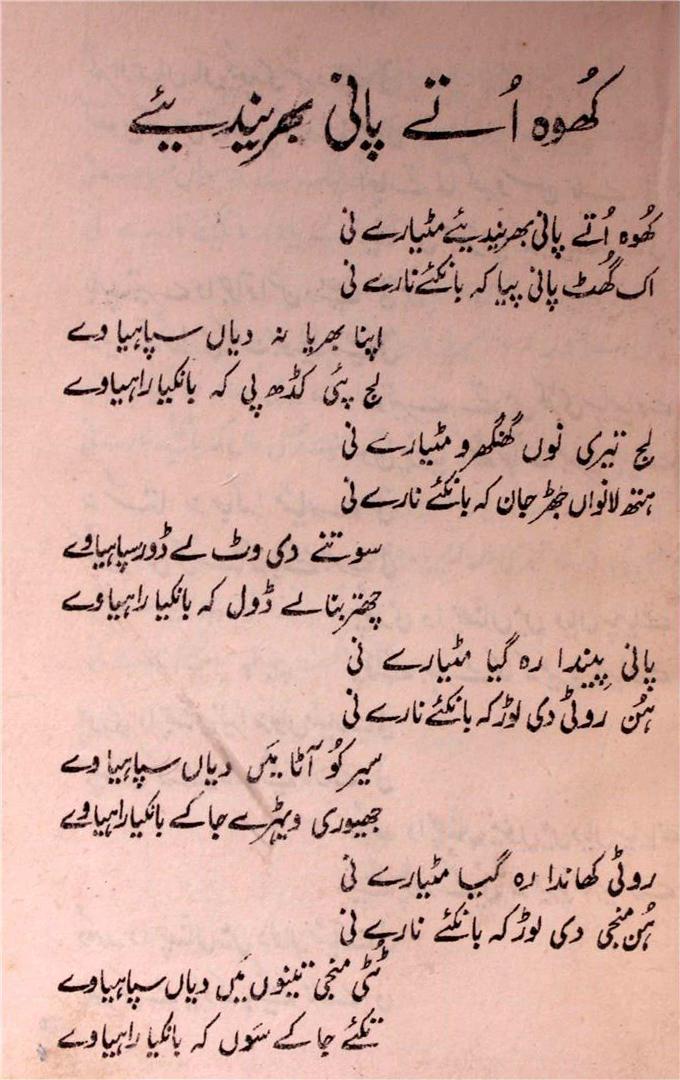 کھُوہ اُتے پانی بھریندیئے
کھُوہ اُتے پانی بھریندیئے مٹیارے نی
اک گھُٹ پانی پیا کہ بانکیئے نارے نی
اپنا بھریا نہ دیاں سپاہیا وے
لج پئی کڈھ پی کہ بانکیا راہیا وے
لج تیری نوں گھُنگھرو مٹیارے نی
ہتھ لانواں جھڑ جان کہ بانکیئے نارے نی
سوتنے دی وٹ لے ڈور سپاہیا وے
چھتر بنا لے ڈول کہ بانکیا راہیا وے
پانی پِیندا رہ گیا مٹیارے نی
ہُن روٹی دی لوڑ کہ بانکیئے نارے نی
سیر کُو آٹا میَں دیاں سپاہیا وے
جھیوری ویہڑے جا کے بانکیا راہیا وے
روٹی کھاندا رہ گیا مٹیارے نی
ہُن منجی دی لوڑ کہ بانکیئے نارے نی
ٹُٹی منجی تینوں میَں دیاں سپاہیا وے
تکیئے جا کے سَوں کہ بانکیا راہیا وے